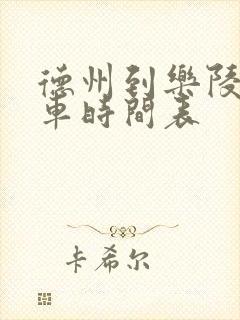 德州到樂陵
車時間表
卡希尔